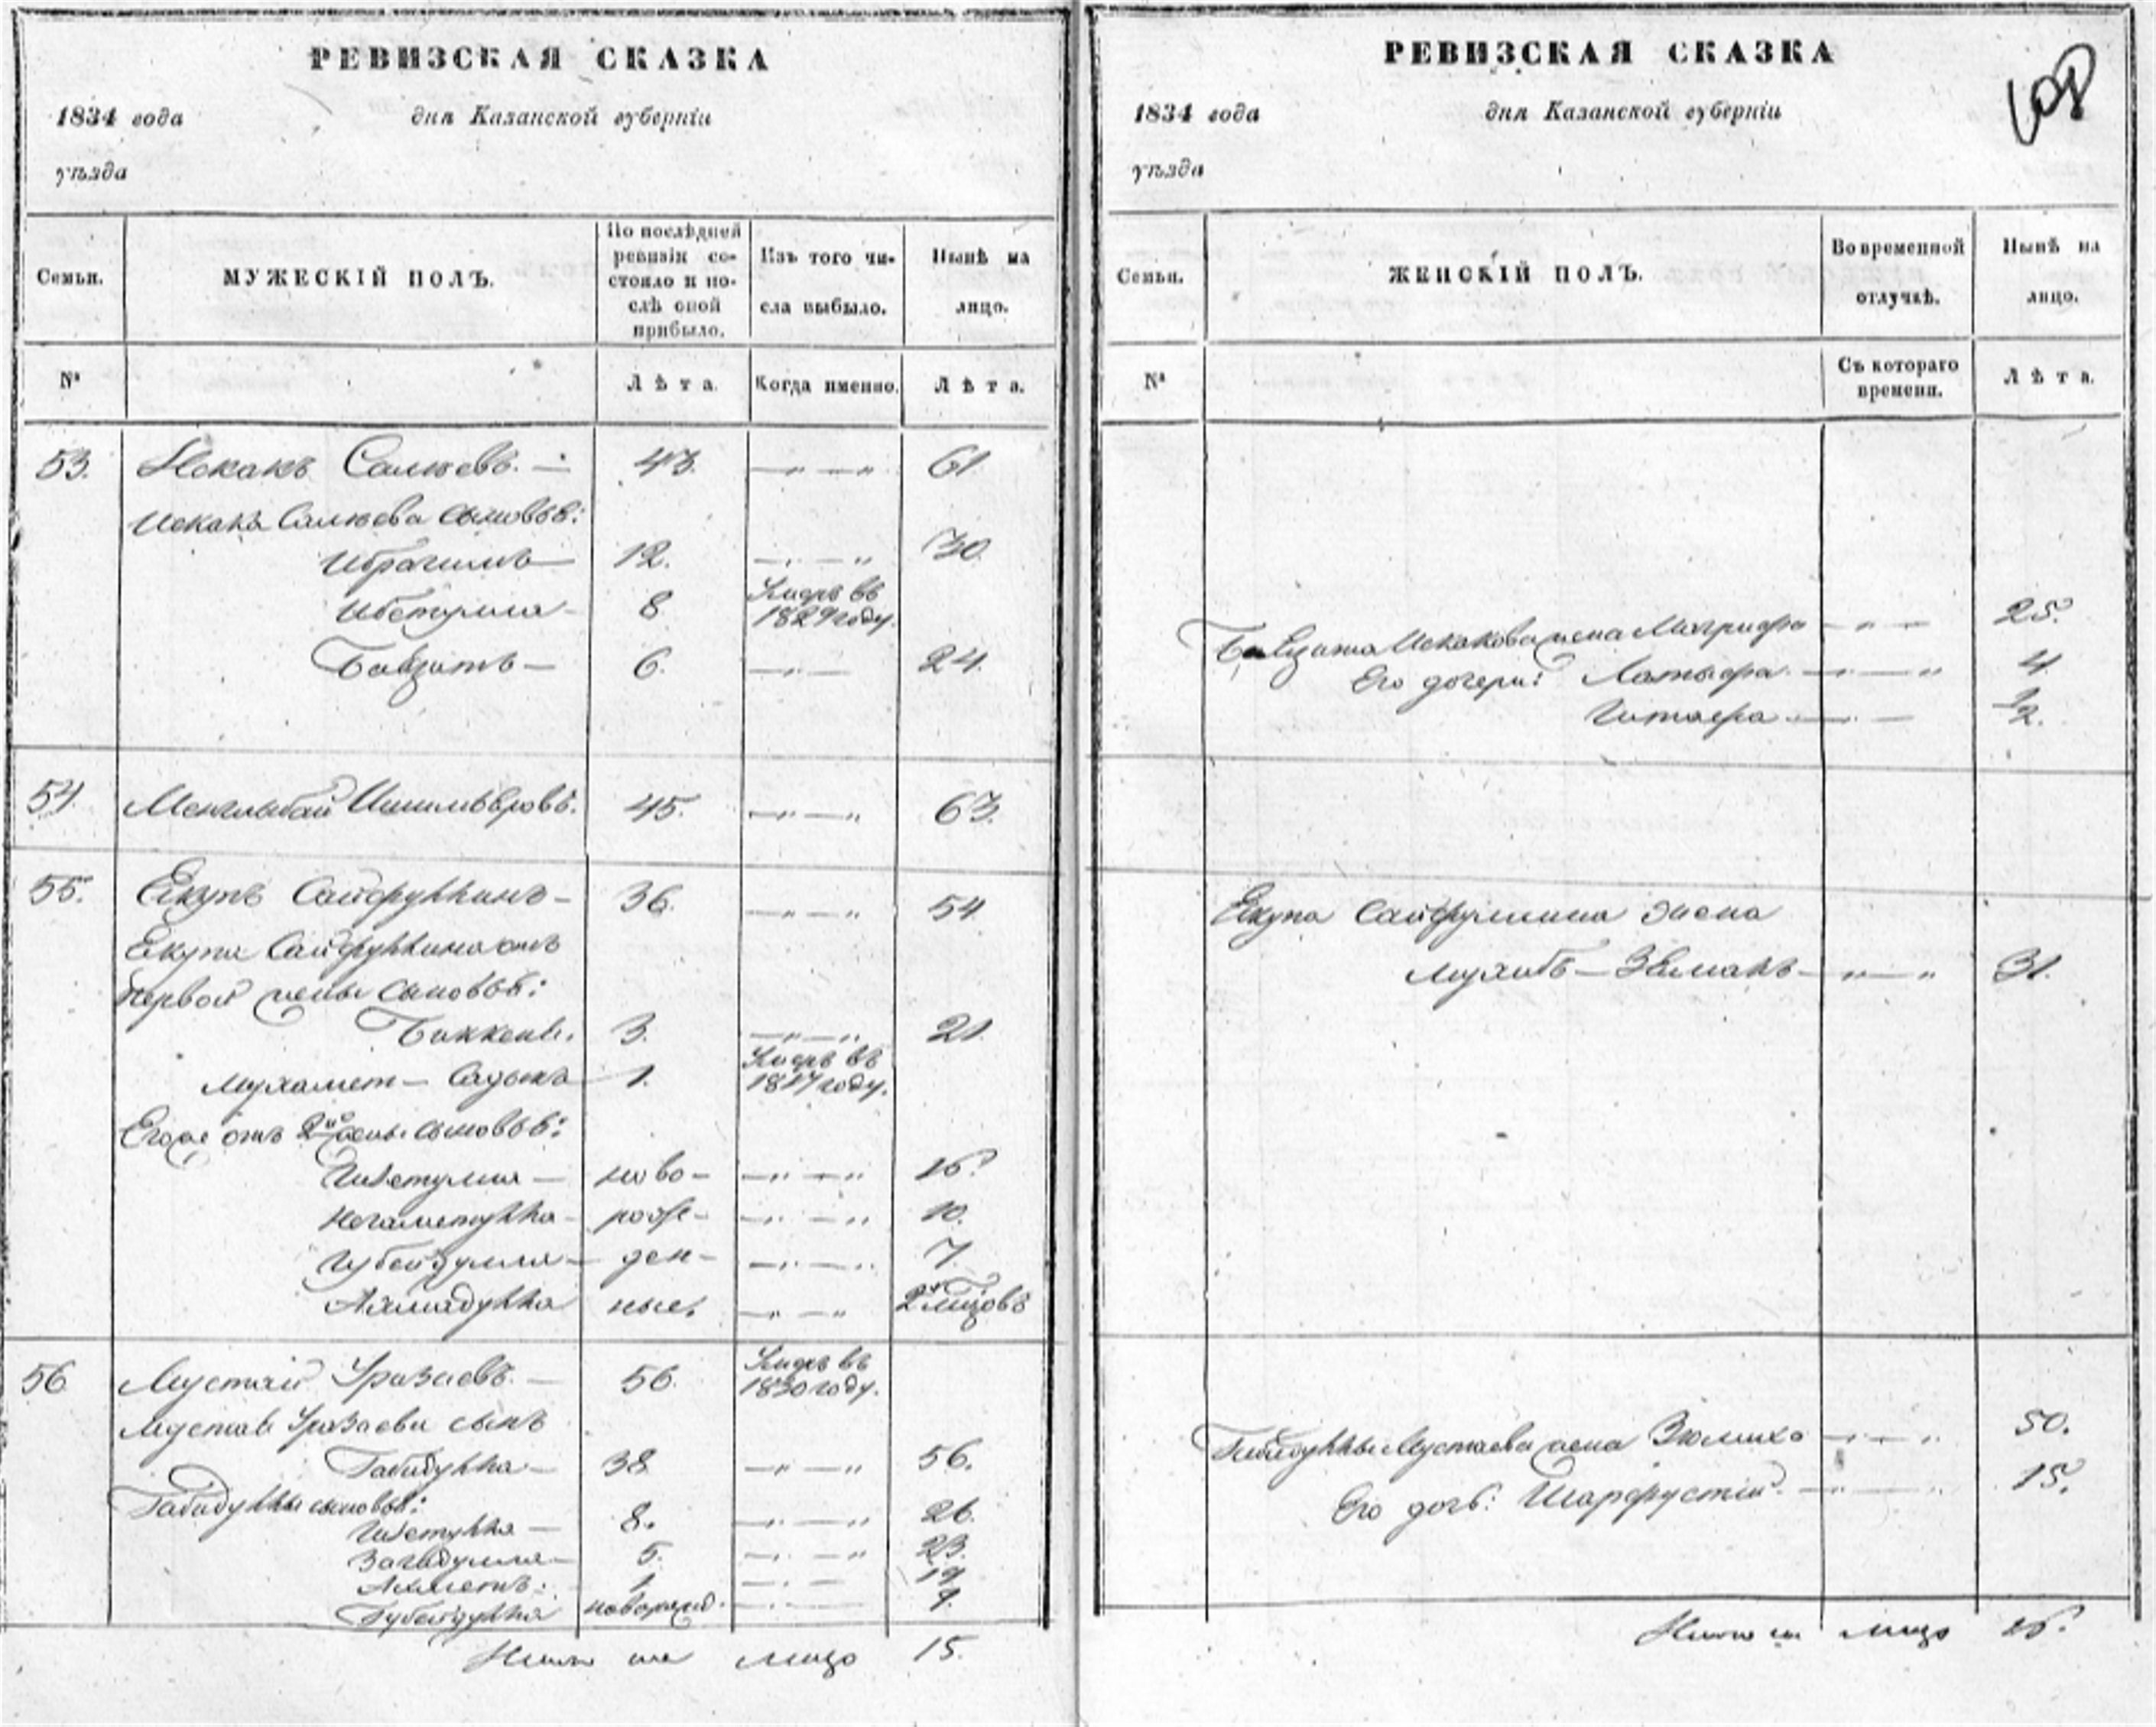 РЕВИЗСКАЯ СКАЗКА
1834 года дня Казанской губерніи
уѣзда
Семьи. МУЖЕСКІЙ ПОЛЪ. По послѣдней ревизіи состояло и послѣ оной прибыло. Изъ того числа выбыло. Нынѣ на лицо.
№ Лѣта. Когда именно. Лѣта.
53. Искакъ Салѣевъ. — 43. — „ — „ 61
Искака Салѣева сыновья:
Ибрагимъ — 12. — „ — „ 30.
8 Умеръ въ 1829 году.
6. — „ — 24.
54. Менглыбай 45. — „ — „ 63.
55. Якупъ Сайфуллинъ — 36. — „ — „ 54
Якупа Сайфуллина отъ
первой жены сыновья:
3. — „ — „ 21.
Мухамет — Садыкъ 1. Умеръ въ 1817 году.
Его же отъ 2й жены сыновья:
ново- — „ — „ 16.
Негаметулла — рож- — „ — „ 10.
Губейдулла — ден- — „ — „ 7.
Ахмадулла ные. — „ — „
56 Мустай Уразаевъ. — 56. Умеръ въ 1830 году.
Мустая Уразаева сынъ
Габидулла — 38 — „ — „ 56.
Габидуллы сыновья:
8. — „ — „ 26.
Загидулла — 5. — „ — „ 23.
Ахметъ. 1 — „ — 19.
Губейдулла новорожд. — „ — 9.
Итого на лицо 15.
РЕВИЗСКАЯ СКАЗКА
108
1834 года дня Казанской губерніи
уѣзда
Семьи. ЖЕНСКІЙ ПОЛЪ. Во временной отлучкѣ. Нынѣ на лицо.
№ Съ котораго времени. Лѣта.
Искакова жена — „ — 25.
Его дочери: Латыфа — „ — „ 4
— „ — ½.
Якупа Сайфуллина жена
— „ — „ 31.
Габидуллы Мустаева жена Зюлиха — „ — „ 50.
Его дочь: — „ — „ 15.
Итого на лицо